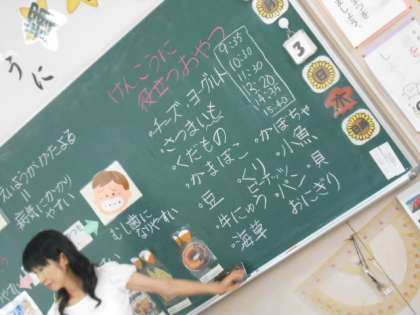 うに
けんこうに
役立つおやつ
9:35
10:30
11:30
13:20
14:35
15:40
3
日
木
曜
・チーズ・ヨーグルト
・さつまいも
・くだもの
・かまぼこ
・豆
・牛にゅう
・海草
・かぼちゃ
・小魚
・くり
・ピーナッツ
・貝
・パン
・おにぎり
えいようがかたよる
病気にかかり
やすい
むし歯に
なりやすい